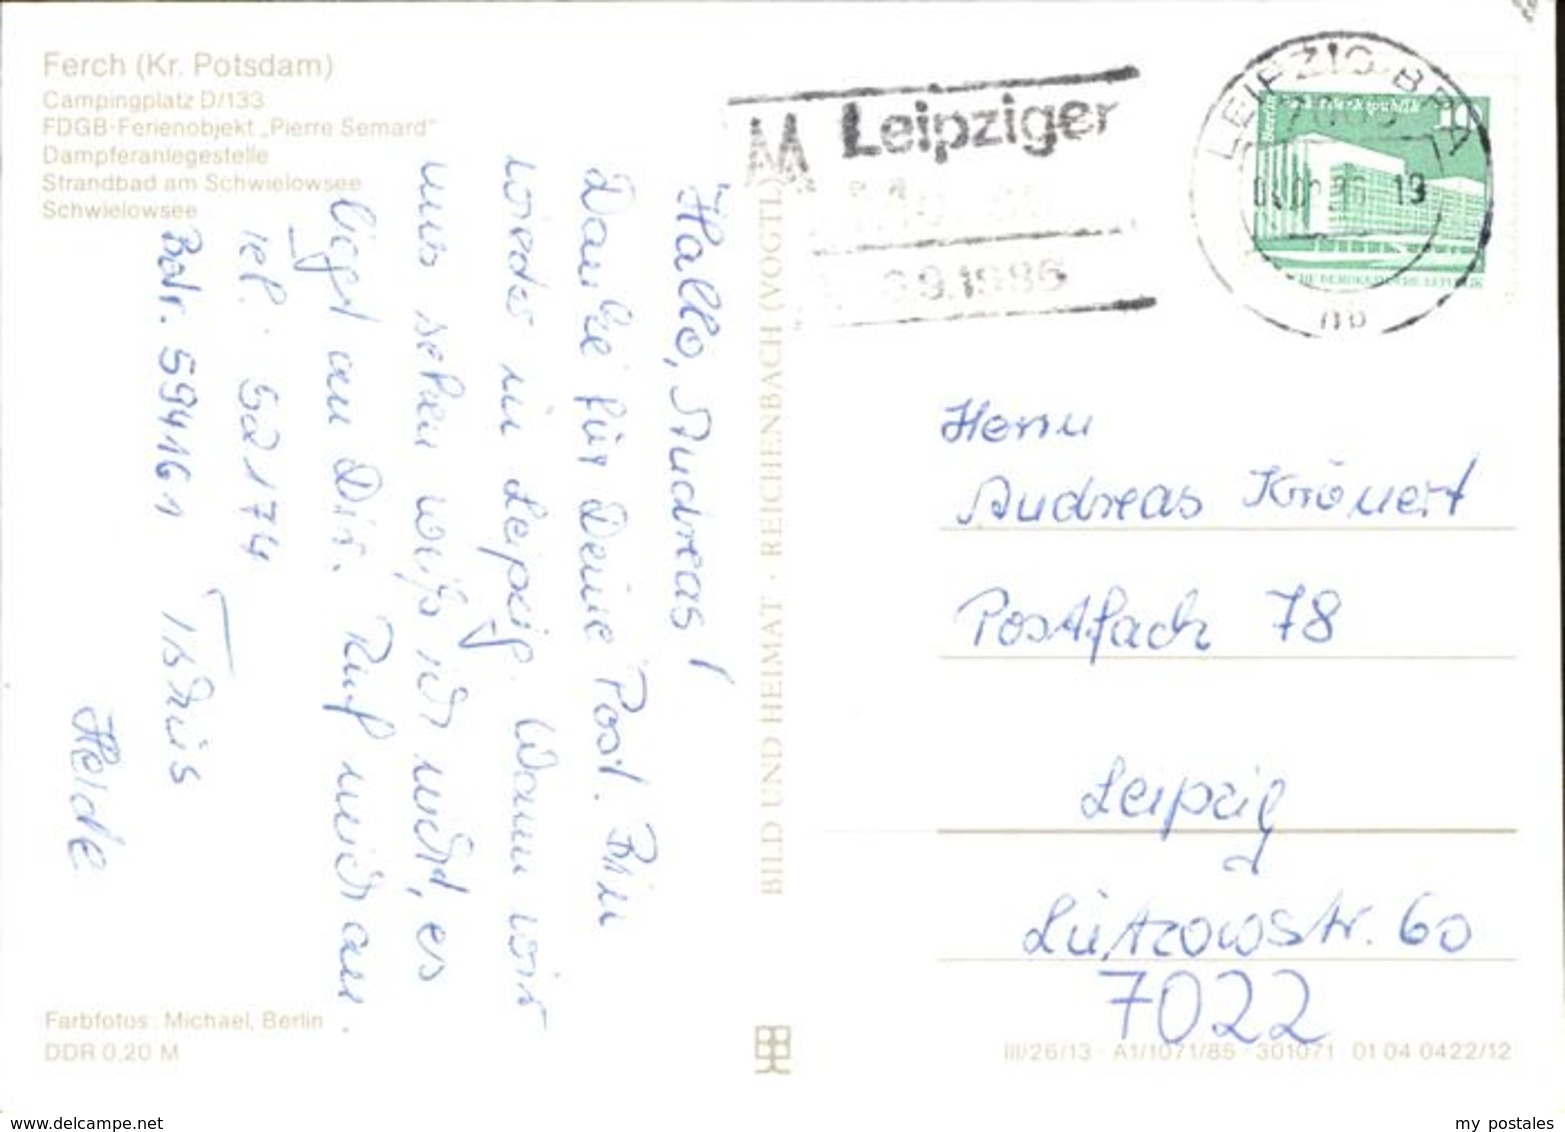 Ferch (Kr. Potsdam)
Campingplatz D/133
FDGB-Ferienobjekt „Pierre Semard"
Dampferanlegestelle
Strandbad am Schwielowsee
Schwielowsee
Hallo, Andreas!
Danke für Deine Post. Bin
wieder in Leipzig. Wann wir
uns sehen weiß ich nicht, es
liegt an Dir. Ruf mich an.
Tel. 52174
Betr. 594161 Tschüs
Heide
Farbfotos: Michael, Berlin
DDR 0,20 M
BILD UND HEIMAT · REICHENBACH (VOGTL)
Leipziger
09.1986
LEIPZIG BPA
19
Berlin
10
Herrn
Andreas Krönert
Postfach 78
Leipzig
Lützowstr. 60
7022
III/26/13 · A1/1071/85 · 301071 · 01 04 0422/12
www.delcampe.net
my_postales